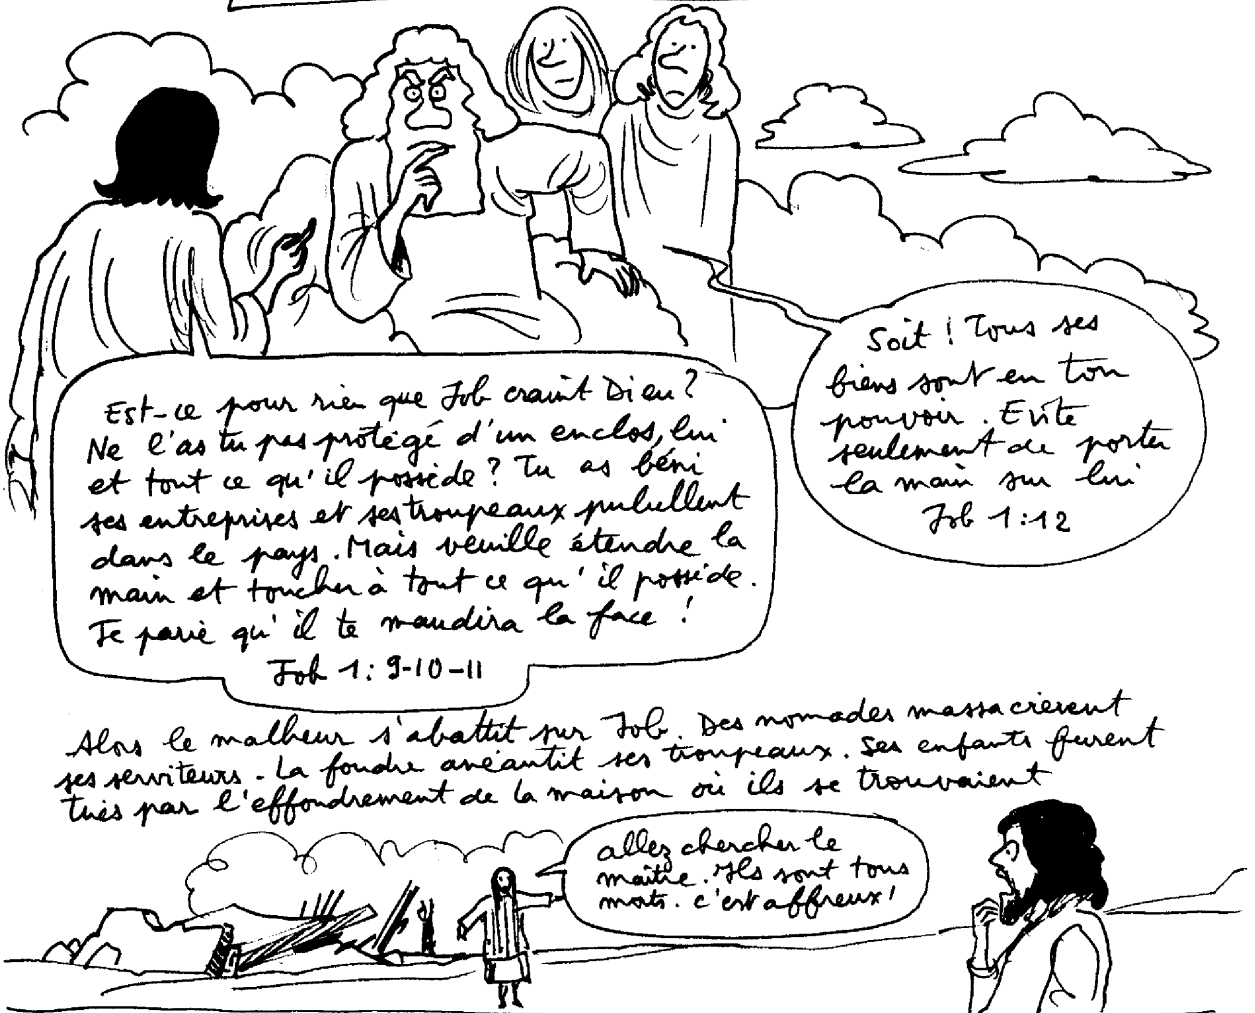 Est-ce pour rien que Job craint Dieu ?
Ne l'as tu pas protégé d'un enclos, lui
et tout ce qu'il possède ? Tu as béni
ses entreprises et ses troupeaux pullulent
dans le pays. Mais veuille étendre la
main et toucher à tout ce qu'il possède.
Je parie qu'il te maudira la face !
Job 1: 9-10-11
Soit ! Tous ses
biens sont en ton
pouvoir. Evite
seulement de porter
la main sur lui
Job 1:12
Alors le malheur s'abattit sur Job. Des nomades massacrèrent
ses serviteurs. La foudre anéantit ses troupeaux. Ses enfants furent
tués par l'effondrement de la maison où ils se trouvaient
allez chercher le
maître. Ils sont tous
morts. c'est affreux !